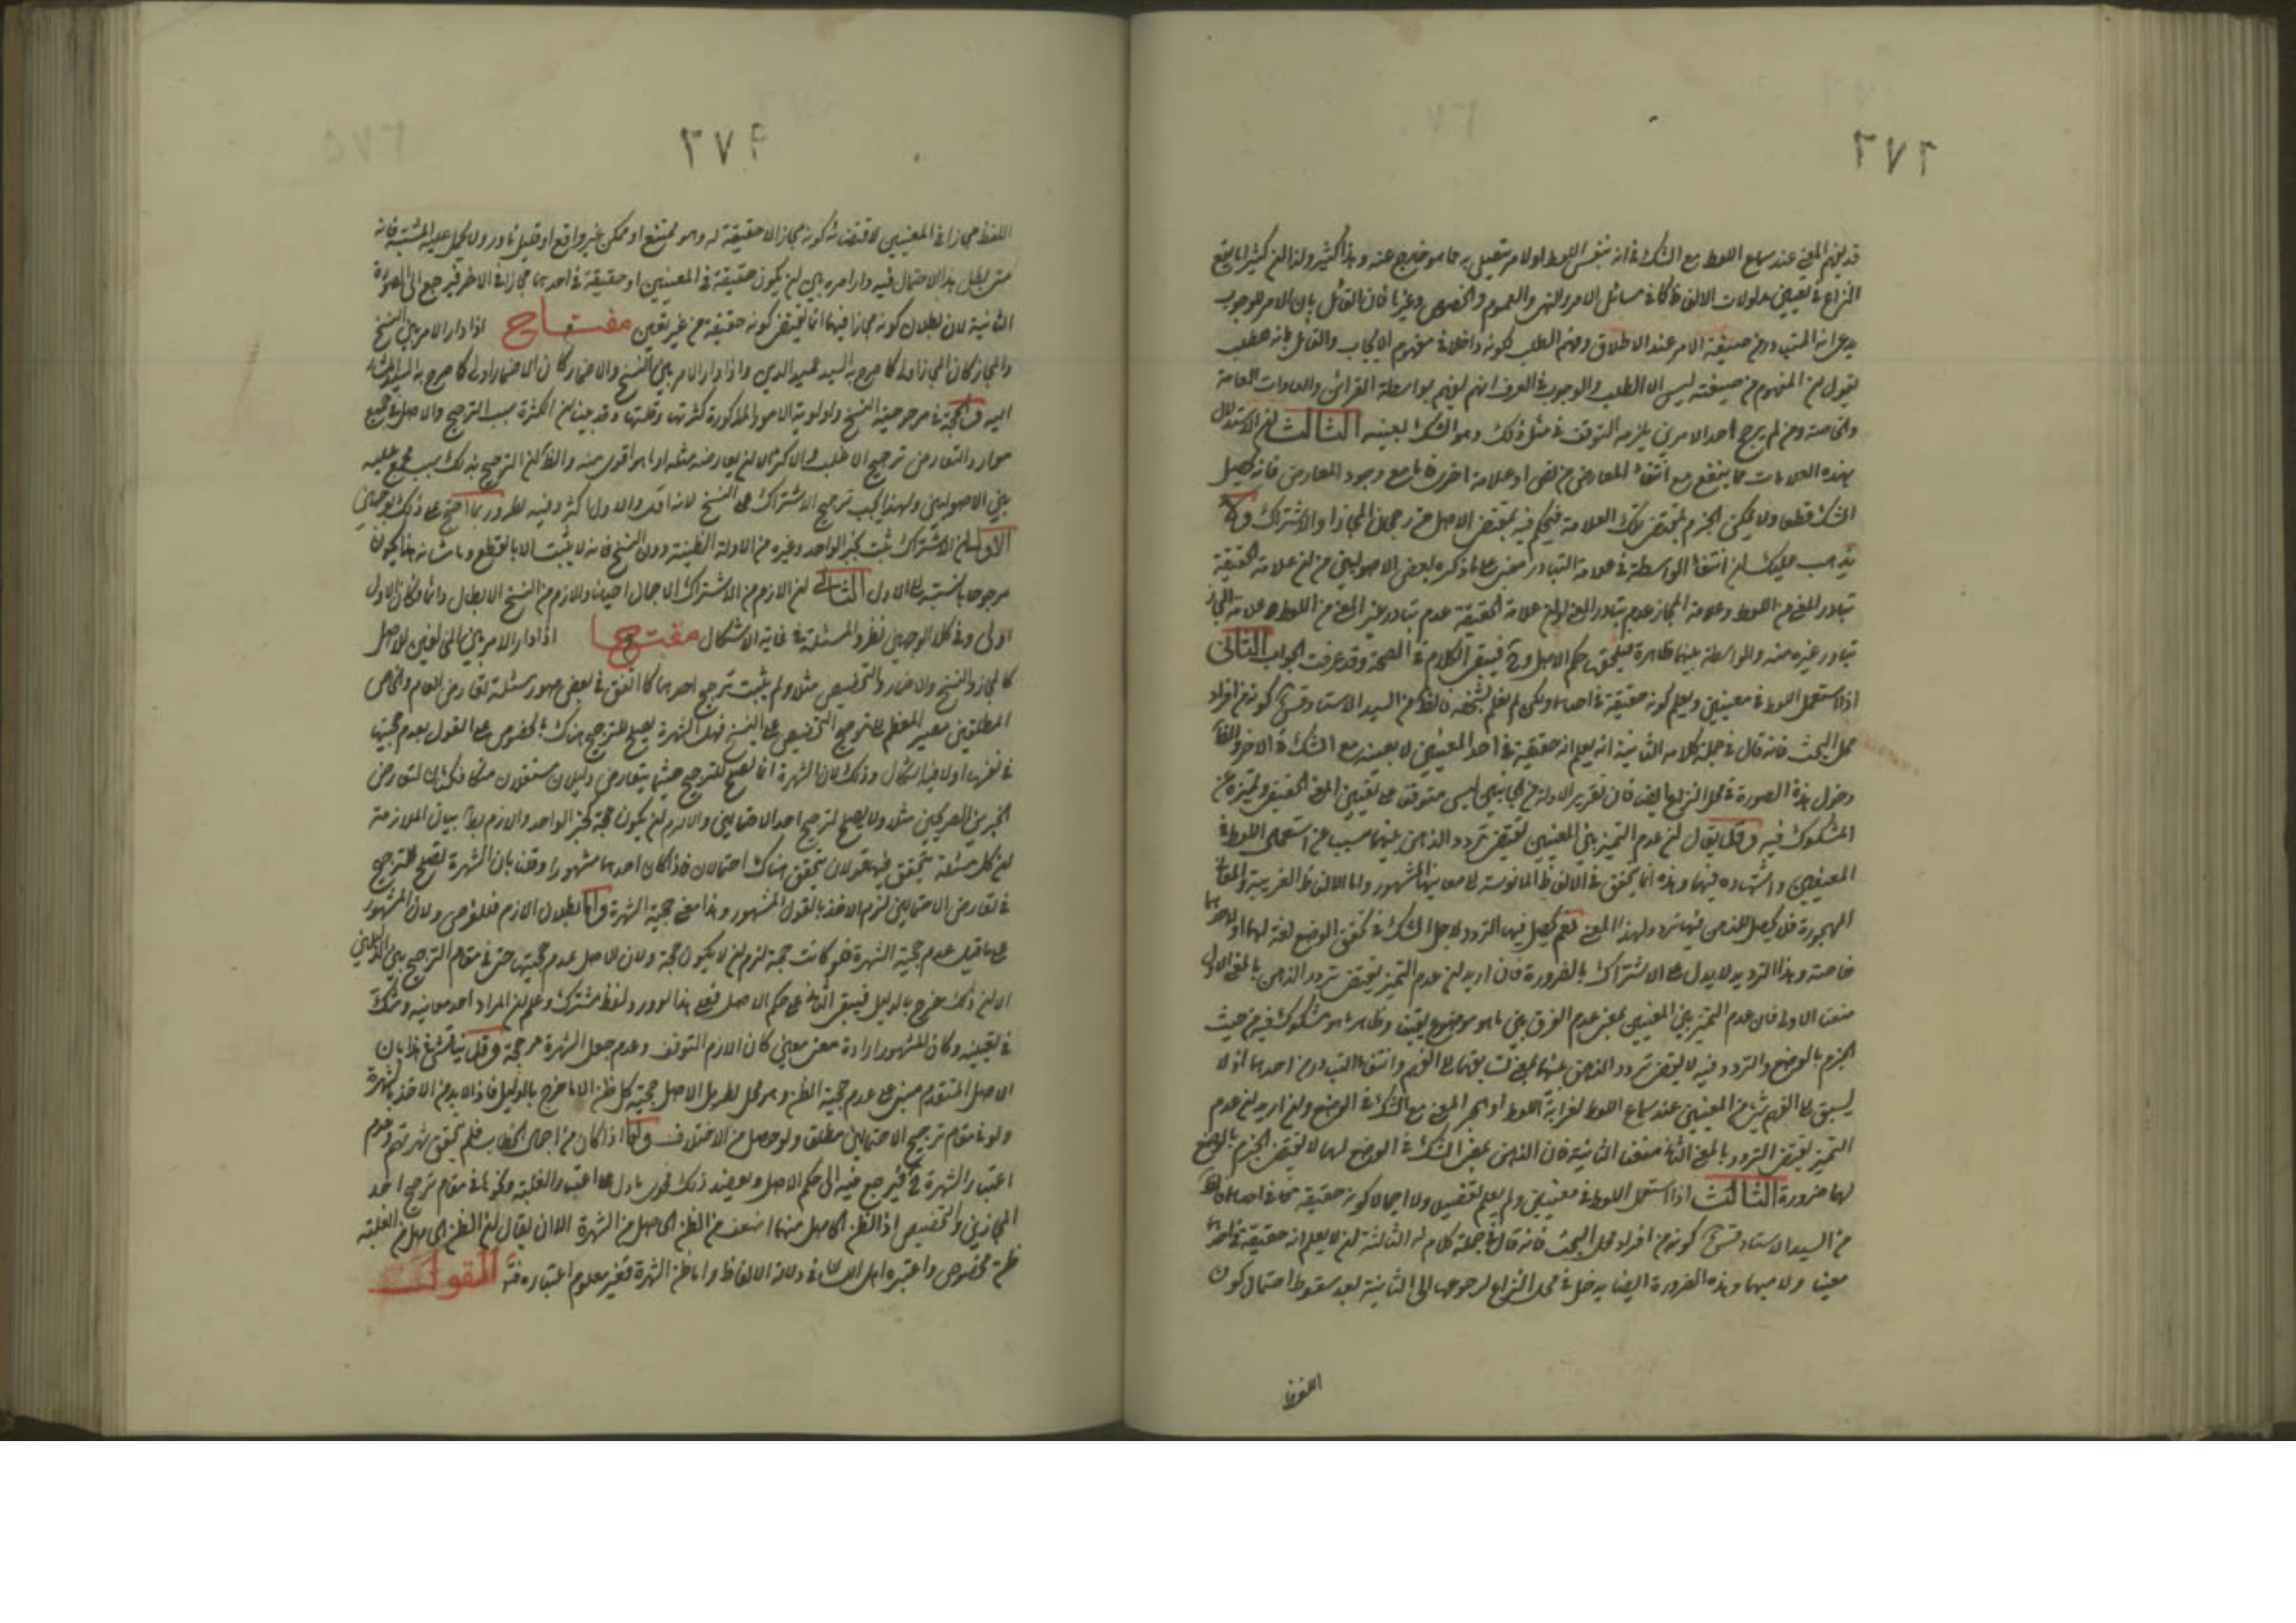 ٢٧٢
قد يفهم المعنى عند سماع اللفظ مع الشك في انه بنفس اللفظ او لامر يتصل به مما هو خارج عنه وهذا كثير ولذا ان كثيرا ما يقع
النزاع في تعيين مدلولات الالفاظ كما في مسائل الامر والنهي والعموم والخصوص وغيرها فان القائل بان الامر للوجوب
يدعي انه المتبادر من صيغة الامر عند الاطلاق وفهم الطلب لكونه داخلا في مفهوم الايجاب والقائل بانه للطلب
يقول ان المفهوم من صيغته ليس الا الطلب والوجوب في العرف انما يفهم بواسطة القرائن والعادات العامة
والخاصة ومن لم يرجح احد الامرين يلزمه التوقف في مثل ذلك وهو الشك بعينه الثالث ان الاستدلال
بهذه العلامات مما ينفع مع انتفاء المعارض من نص او علامة اخرى فاما مع وجود المعارض فانه يحصل
الشك قطعا ولا يمكن الجزم بمقتضى تلك العلامة فيحكم فيه بمقتضى الاصل من رجحان المجاز او الاشتراك ولا
يذهب عليك ان انتفاء الواسطة في علامة التبادر مبني على ما ذكره بعض الاصوليين من ان علامة الحقيقة
تبادر المعنى من اللفظ وعلامة المجاز عدم تبادر المعنى او ان علامة الحقيقة عدم تبادر غير المعنى من اللفظ وعلامة المجاز
تبادر غيره منه والواسطة بينهما ظاهرة فيلحق بها حكم الاصل وح فيبقى الكلام في الصحة وقد عرفت الجواب الثاني
اذا استعمل اللفظ في معنيين ويعلم كونه حقيقة في احدهما ولكن لم نعلم بشخصه فالظ من السيد الاستاد قدس كونه من افراد
محل البحث فانه قال في جملة كلامه الثانية انه يعلم انه حقيقة في احد المعنيين لا بعينه مع الشك في الاخر والظ
دخول هذه الصورة في محل النزاع ايضا فان تقرير الادلة من الجانبين ليس متوقفا على تعيين المعنى الحقيقي وتميزه عن
المشكوك فيه وقد يقال ان عدم التميز بين المعنيين يقتضي تردد الذهن بينهما مسببا عن استعمال اللفظ في
المعنيين واشتهاره فيهما وهذه انما يتحقق في الالفاظ المانوسة لا معانيها المشهور واما الالفاظ الغريبة والمعاني
المهجورة فلا يحصل للذهن فيها تردد لهذا المعنى نعم يحصل فيها التردد لاجل الشك في تحقق الوضع لغة لهما او لاحدهما
خاصة وهذا التردد لا يدل على الاشتراك بالضرورة فان اريد ان عدم التميز يقتضي تردد الذهن بالمعنى الاول
منعنا الاولى فان عدم التميز بين المعنيين بمعنى عدم الفرق بين ما هو موضوع يقينا وظاهرا وما هو مشكوك فيه من حيث
الجزم بالوضع والتردد فيه لا يقتضي تردد الذهن بينهما بمعنى تسابقهما الى الفهم وانتفاء التبادر من احدهما اذ لا
يسبق الى الفهم شيء من المعنيين عند سماع اللفظ لغرابة اللفظ او لهجر المعنى مع الشك في الوضع وان اريد ان عدم
التميز يقتضي التردد بالمعنى الثاني منعنا الثانية فان الذهن بمعنى الشك في الوضع لهما لا يقتضي الجزم بالوضع
لهما ضرورة الثالث اذا استعمل اللفظ في معنيين ولم يعلم تفصيلا ولا اجمالا كونه حقيقة في احدهما فالظ
من السيد الاستاد قدس كونه من افراد محل البحث فانه قال في جملة كلام له الثالثة ان لا يعلم انه حقيقة في احدهما
معينا ولا مبهما وهذه الضرورة ايضا يدخل في محل النزاع لرجوعها الى الثانية بعد سقوط احتمال كون
اللفظ
٢٧٤
اللفظ مجازا في المعنيين لاقتضائه كونه مجازا لا حقيقة له وهو ممتنع او ممكن غير واقع او قليل نادر ولا يحمل عليه المشتبه فانه
متى بطل هذا الاحتمال فيه دار امره بين ان يكون حقيقة في المعنيين او حقيقة في احدهما مجازا في الاخر فيرجع الى الصورة
الثانية لان بطلان كونه مجازا فيهما انما يقتضي كونه حقيقة من غير تعيين مفتاح اذا دار الامر بين النسخ
والمجاز كان المجاز اولى كما صرح به السيد عميد الدين واذا دار الامر بين النسخ والاضمار كان الاضمار اولى كما صرح به السيد المشار
اليه والحجة ما مر مرجوحية النسخ واولوية الامور المذكورة كثرتها وقلتها وقد بينا ان الكثرة سبب الترجيح والاصل في جميع
موارد التعارض ترجيح الاغلب والاكثر الا ان يعارضه مثله او ما هو اقوى منه والظ ان الترجيح بذلك سبب مجمع عليه
بين الاصوليين ولهذا يجب ترجيح الاشتراك على النسخ لانه اقل والاول اكثر وفيه نظر وربما احتج على ذلك بوجهين
الاول ان الاشتراك يثبت بخبر الواحد وغيره من الادلة الظنية دون النسخ فانه لا يثبت الا بالقطع وما شانه هذا يكون
مرجوحا بالنسبة الى الاول الثاني ان اللازم من الاشتراك الاجمال احيانا واللازم من النسخ الابطال دائما فكان الاول
اولى وفي كلا الوجهين نظر والمسئلة في غاية الاشكال مفتاح اذا دار الامر بين المخالفين للاصل
كالمجاز والنسخ والاضمار والتخصيص مثلا ولم يثبت ترجيح احدهما كما اتفق في بعض صور مسئلة تعارض العام والخاص
المطلقين مصير المعظم الى ترجيح التخصيص على النسخ فهل الشهرة يصلح للترجيح هناك بالخصوص على القول بعدم حجيتها
في نفسها او لا فيه اشكال وذلك لان الشهرة انما تصلح للترجيح حيثما يتعارض دليلان مستقلان متكافئان كتعارض
الخبرين الصحيحين مثلا ولا يصلح لترجيح احد الاحتمالين والا لزم ان يكون حجة كخبر الواحد واللازم بط بيان الملازمة
ان كل مسئلة يتحقق فيها قولان يتحقق هناك احتمالان فاذا كان احدهما مشهورا وقلنا بان الشهرة تصلح للترجيح
في تعارض الاحتمالين لزم الاخذ بالقول المشهور وهذا معنى حجية الشهرة واما بطلان اللازم فللفرض ولان المشهور
على ما قيل عدم حجية الشهرة فلو كانت حجة لزم ان لا يكون حجة ولان الاصل عدم حجيتها حتى في مقام الترجيح بين الدليلين
الا ان ذلك خرج بالدليل فيبقى الباقي على حكم الاصل فعلى هذا لو ورد لفظ مشترك وعلم ان المراد احد معانيه وشك
في تعيينه وكان المشهور ارادة معنى معين كان اللازم التوقف وعدم جعل الشهرة مرجحة وقد يناقش في هذا بان
الاصل المتقدم مبني على عدم حجية الظن وهو محل نظر بل الاصل حجية كل ظن الا ما خرج بالدليل فاذا لا بد من الاخذ بالشهرة
ولو في مقام ترجيح الاحتمالين مطلقا ولو حصل من الاختلاف واما اذا كان من اجمال الخطاب فلم يتحقق شهرتهم وعدم
اعتبار الشهرة ح فيرجع فيه الى حكم الاصل ويعضد ذلك فحوى ما دل على اعتبار الغلبة ونحوها في مقام ترجيح احد
المجازين والتخصيص اذ الظن الحاصل منهما اضعف من الظن الحاصل من الشهرة الا ان يقال ان الظن الحاصل من الغلبة
ظن مخصوص واعتبره اهل اللسان في دلالة الالفاظ واما ظن الشهرة فغير معلوم اعتباره فت القول